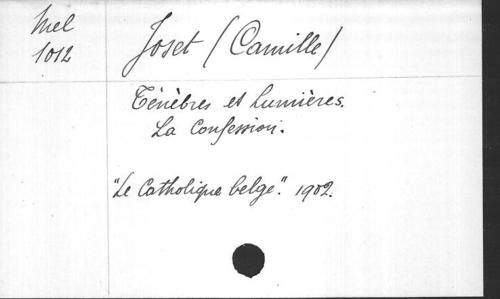 Mel
1012
Joset (Camille)
Ténèbres et Lumières.
La Confession.
"Le Catholique belge". 1902.